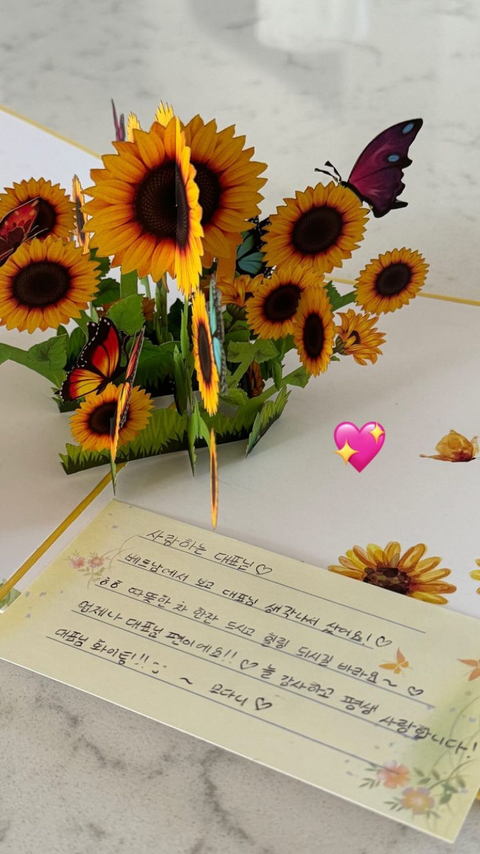 사랑하는 대표님♡
베트남에서 보고 대표님 생각나서 샀어요!♡
ㅎㅎ 따뜻한 차 한잔 드시고 힐링 되시길 바라요~ ♡
언제나 대표님 편이에요!! ♡ 늘 감사하고 평생 사랑합니다!
대표님 화이팅!!! :) ~ 모다니 ♡